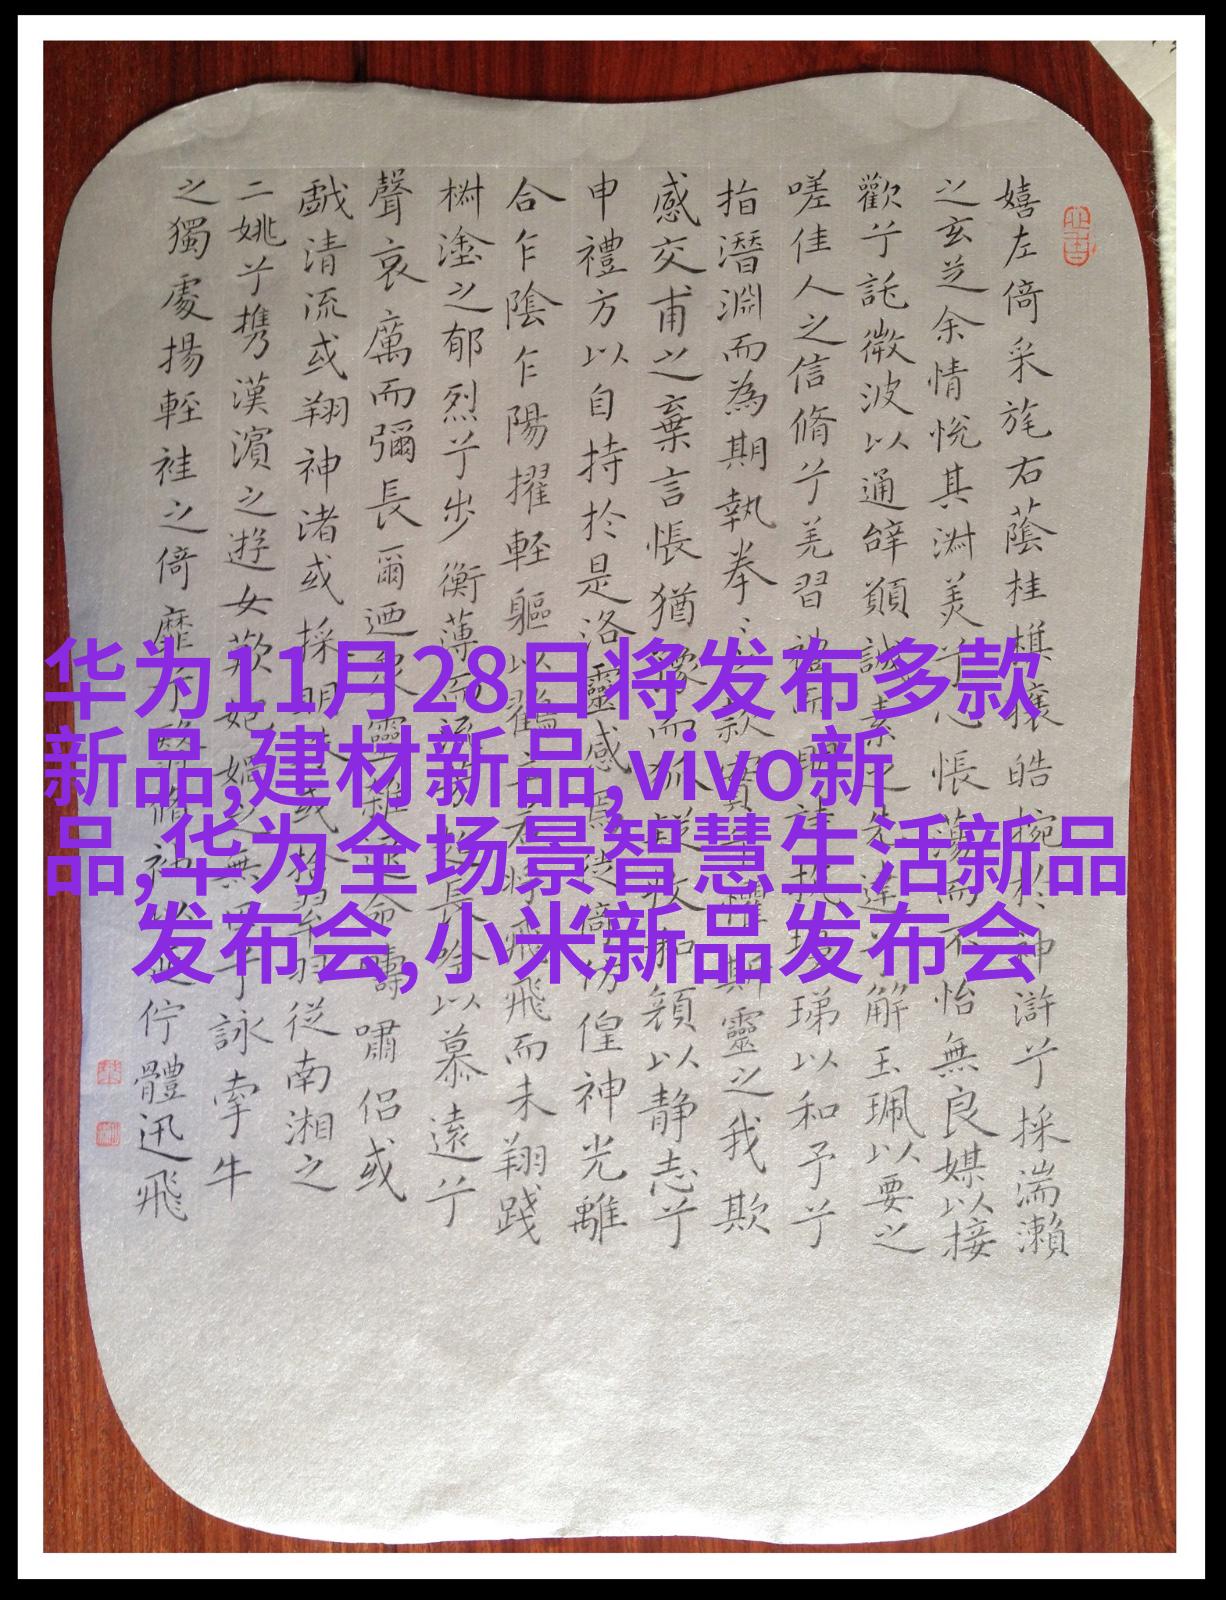 华为11月28日将发布多款
新品,建材新品,vivo新
品,华为全场景智慧生活新品
发布会,小米新品发布会
嬉左倚采旄右蔭桂旗攘皓捥於神滸兮採湍瀨
之玄芝余情悅其淑美兮心悵蕩而不怡無良媒以接
歡兮託微波以通辭願誠素之先達兮解玉珮以要之
嗟佳人之信脩兮羌習禮而明詩抗瓊珶以和予兮
指潛淵而為期執拳之款實兮懼斯靈之我欺
感交甫之棄言悵猶豫而狐疑收和顏以静志兮
申禮方以自持於是洛靈感焉徙倚彷徨神光離
合乍陰乍陽擢軽軀以鶴立若將飛而未翔踐
椒塗之郁烈兮步衡薄而流芳超長吟以慕遠兮
聲哀厲而彌長爾迺眾靈雜遝命疇嘯侶或
戲清流或翔神渚或採明珠或拾翠羽從南湘之
二姚兮携漢濱之遊女歎匏媧之無匹兮詠牽牛
之獨處揚軽袿之倚靡兮翳脩袖以延佇體迅飛